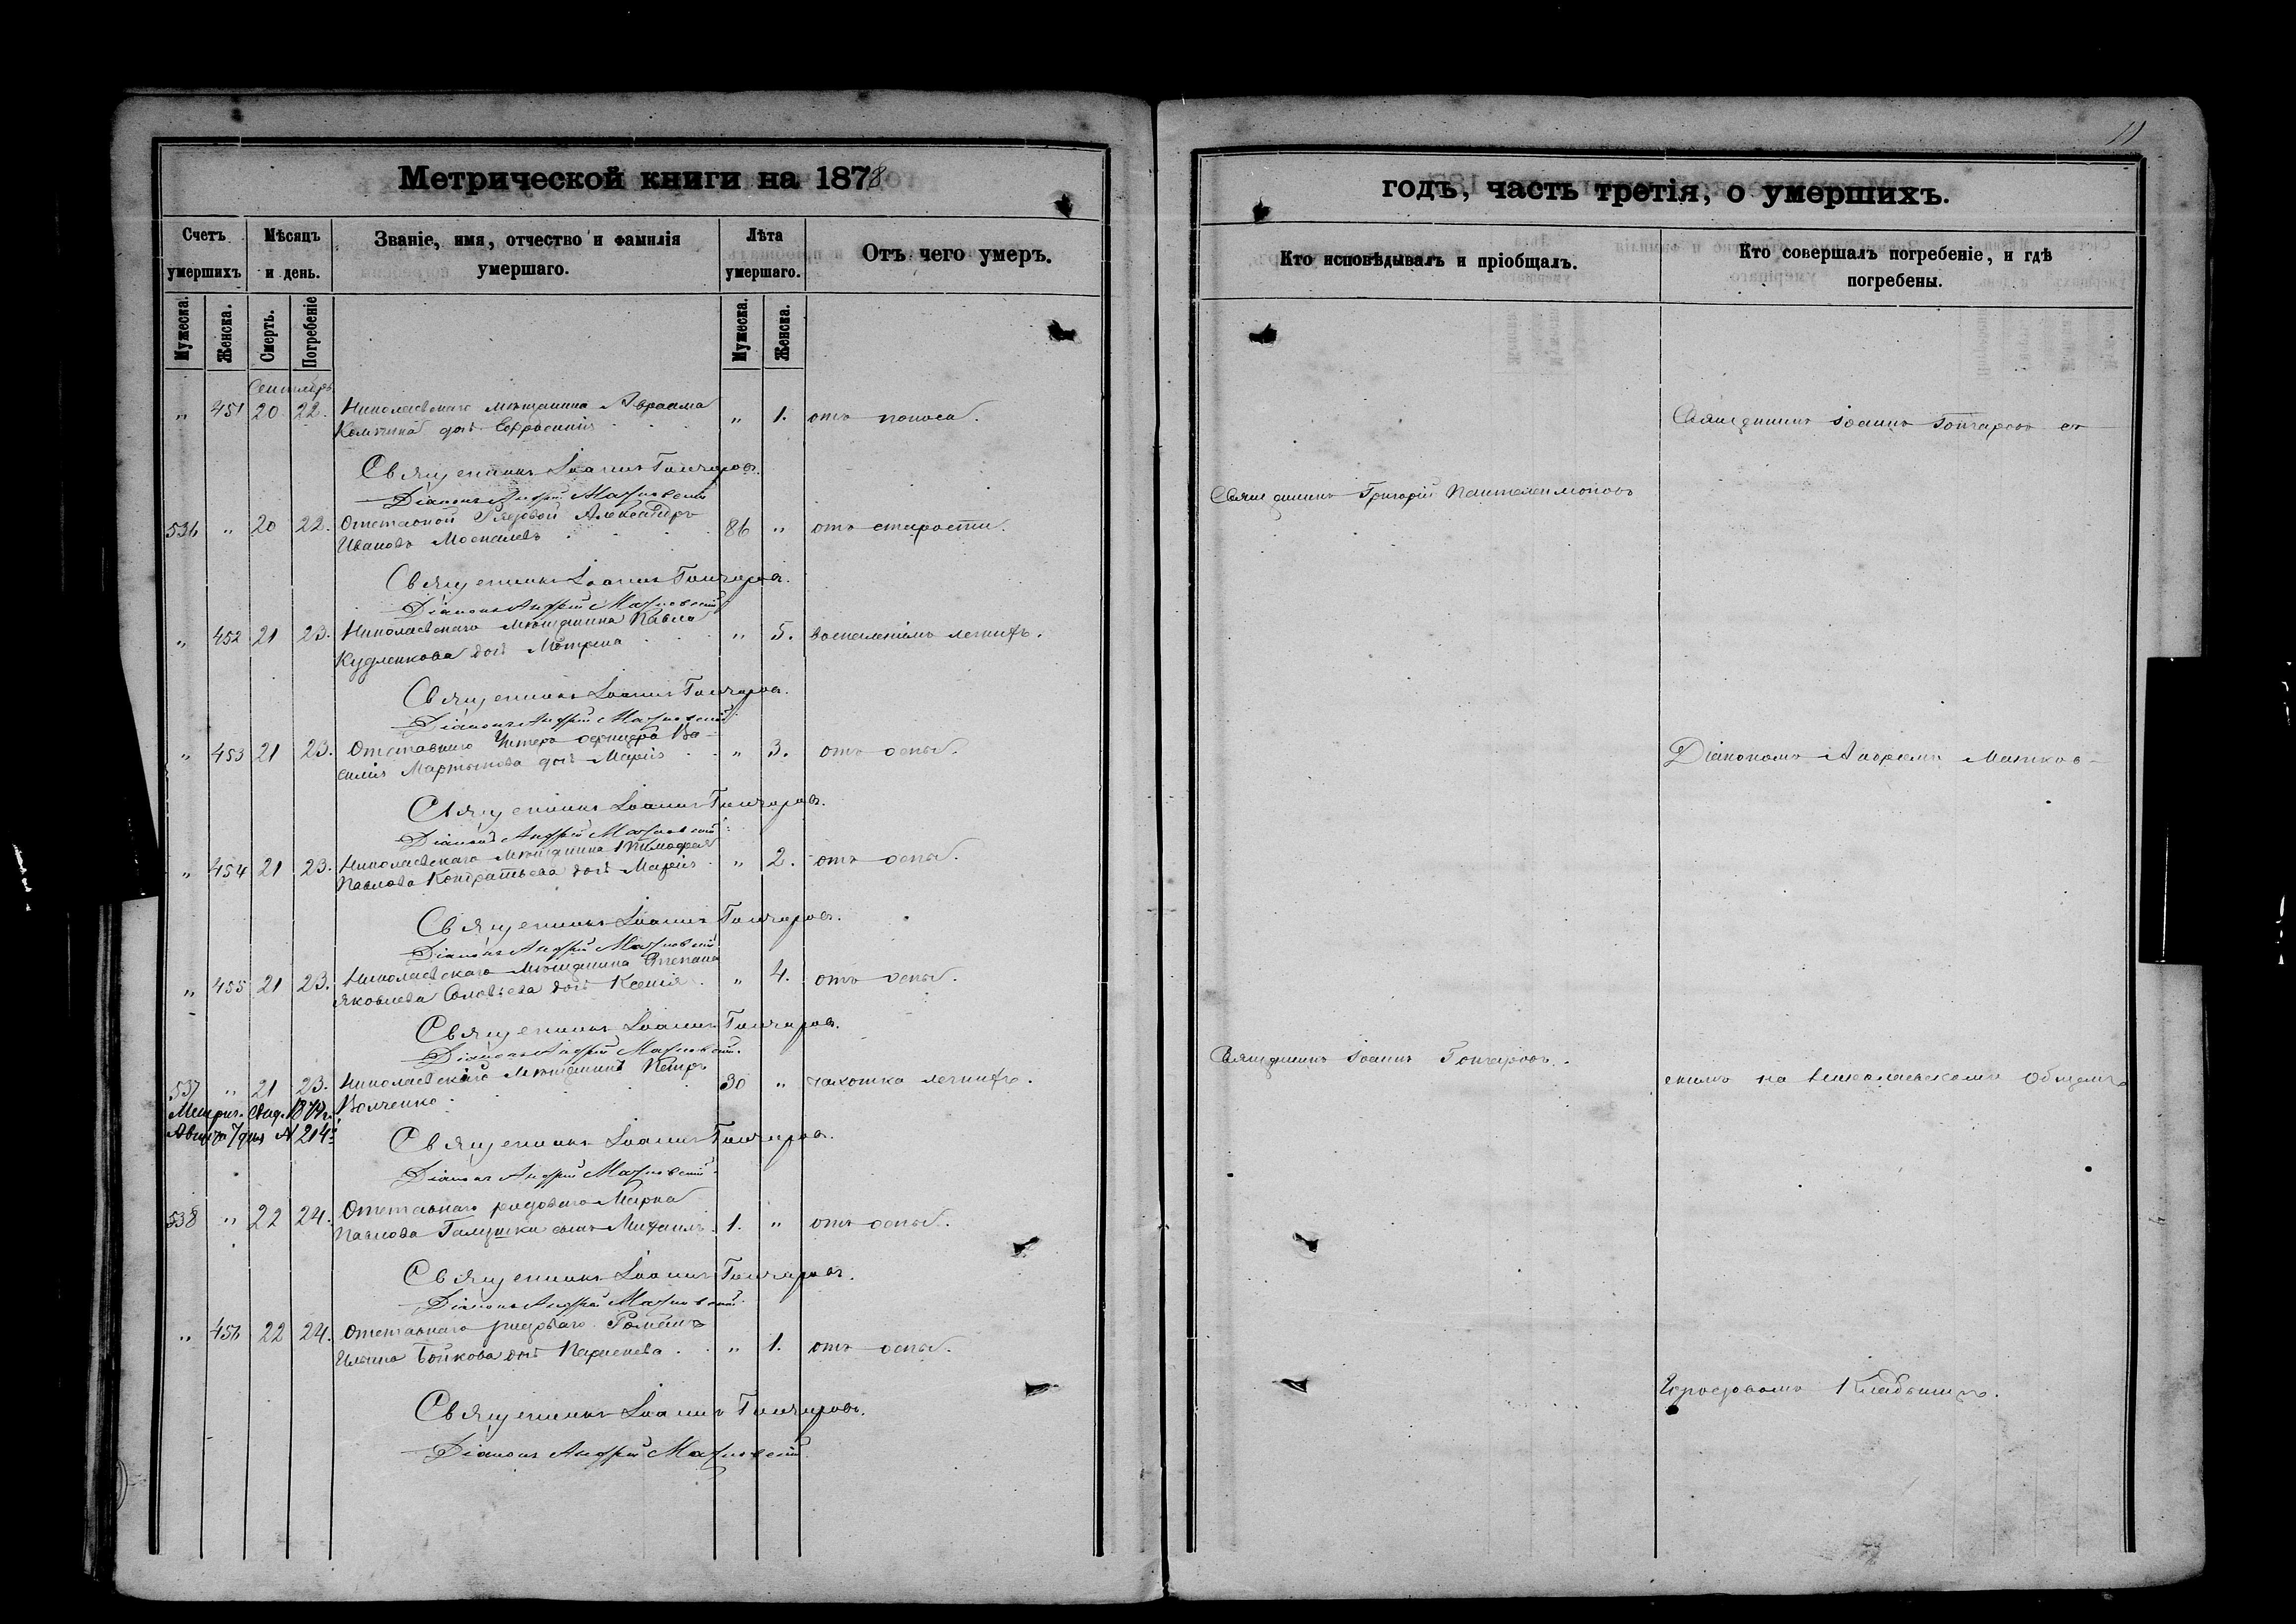 Метрической книги на 1878
Счетъ умершихъ
Мѣсяцъ и день.
Званіе, имя, отчество и фамилія умершаго.
Лѣта умершаго.
Отъ чего умеръ.
Мужеска.
Женска.
Смерть.
Погребеніе
Мужеска.
Женска.
Сентябрь
" 451 20 22. Николаевскаго мѣщанина Авраама " 1. отъ поноса.
дочь Евфросинія
Священникъ Іоаннъ Гончаровъ.
Діаконъ Андрей
536 " 20 22. Отставной Рядовой Александръ 86 " отъ старости.
Ивановъ Москалевъ
Священникъ Іоаннъ Гончаровъ.
Діаконъ Андрей
" 452 21 23. Николаевскаго мѣщанина Павла " 5. воспаленіемъ легкихъ.
Кудленкова дочь Матрена
Священникъ Іоаннъ Гончаровъ.
Діаконъ Андрей
" 453 21 23. Отставнаго Унтеръ офицера Ва- " 3. отъ оспы.
силія Мартынова дочь Марія
Священникъ Іоаннъ Гончаровъ.
Діаконъ Андрей
" 454 21 23. Николаевскаго мѣщанина Тимофея " 2. отъ оспы.
Павлова Кондратьева дочь Марія
Священникъ Іоаннъ Гончаровъ.
Діаконъ Андрей
" 455 21 23. Николаевскаго мѣщанина Степана " 4. отъ оспы.
Яковлева Соловьева дочь Ксенія
Священникъ Іоаннъ Гончаровъ.
Діаконъ Андрей
537 " 21 23. Николаевскій мѣщанинъ Петръ 30 " чахотка легкихъ.
Волченко
Метрич. свид.
Августа 7 дня № 214
Священникъ Іоаннъ Гончаровъ.
Діаконъ Андрей
538 " 22 24. Отставнаго рядоваго Марка 1. " отъ оспы.
Павлова Галушки сынъ Михаилъ
Священникъ Іоаннъ Гончаровъ.
Діаконъ Андрей
" 456 22 24. Отставнаго рядоваго " 1. отъ оспы.
Ильина Бойкова дочь
Священникъ Іоаннъ Гончаровъ.
Діаконъ Андрей
11
годъ, часть третія, о умершихъ.
Кто исповѣдывалъ и пріобщалъ.
Кто совершалъ погребеніе, и гдѣ погребены.
Священникъ Іоаннъ Гончаровъ съ
Священникъ Григорій Пантелеимоновъ
Діакономъ Андреемъ
Священникъ Іоаннъ Гончаровъ.
скимъ на Николаевскомъ Общемъ
Городовомъ Кладбищѣ.